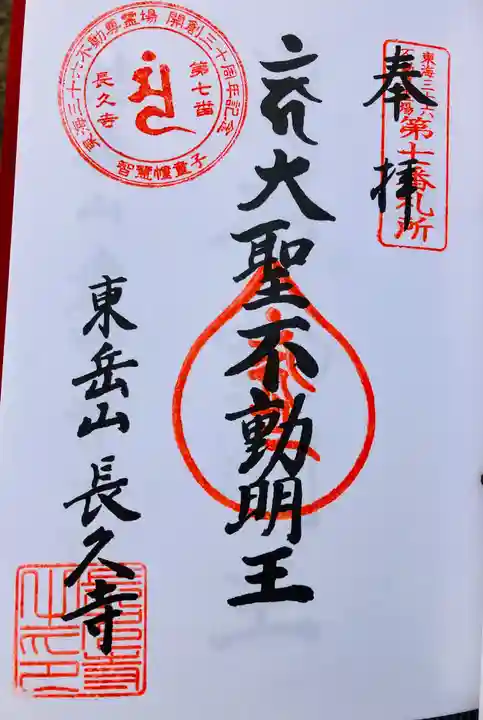 奉拝
東海三十六
不動霊場
第七番札所
大聖不動明王
東海三十六不動尊霊場 開創三十周年記念
第七番
長久寺
智慧幢童子
東岳山 長久寺